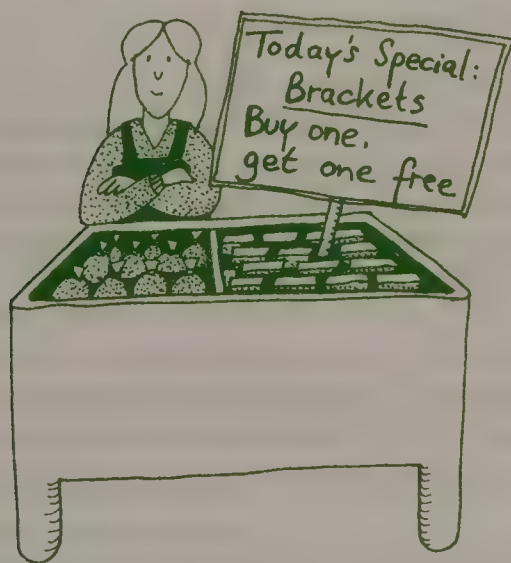 Today's Special:
Brackets
Buy one,
get one free